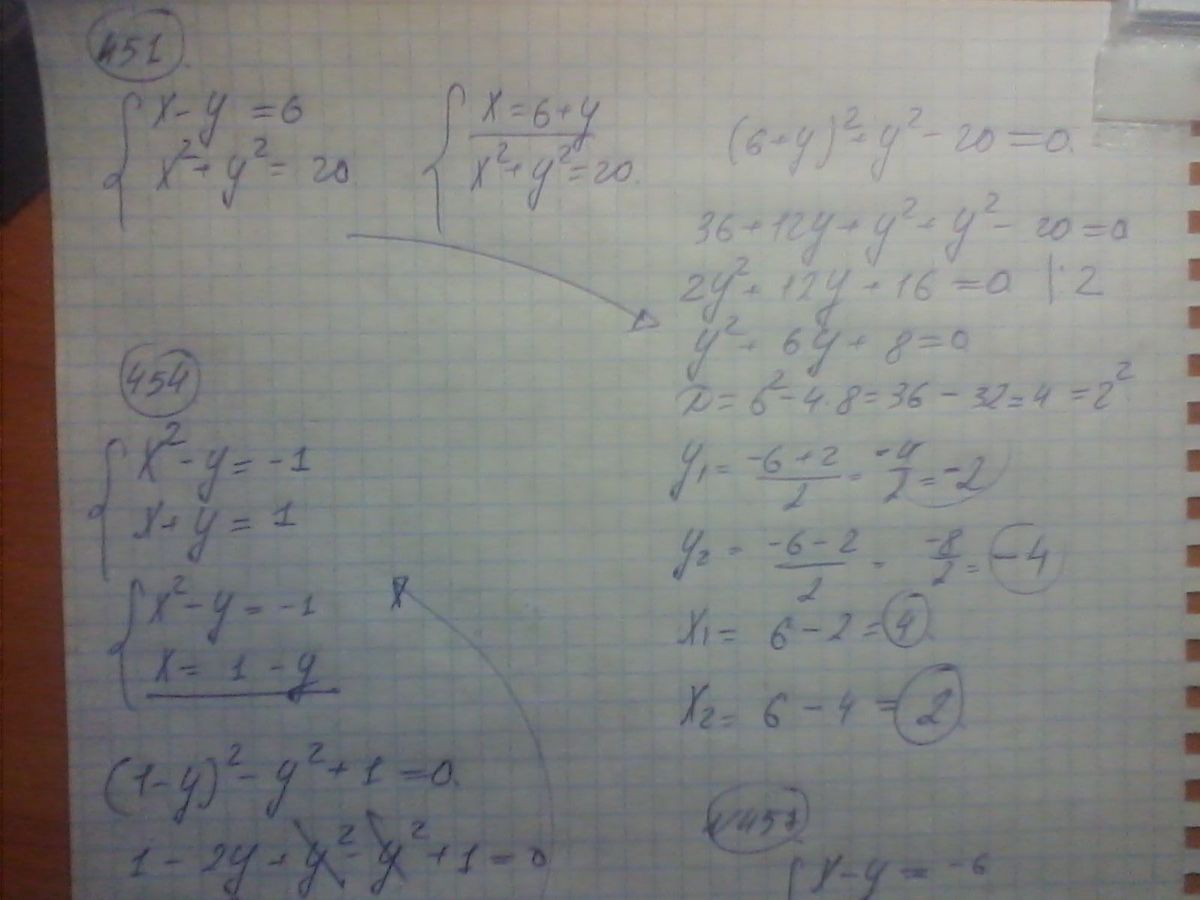 451.
x - y = 6
x² + y² = 20
x = 6 + y
x² + y² = 20.
(6 + y)² + y² - 20 = 0.
36 + 12y + y² + y² - 20 = 0
2y² + 12y + 16 = 0 |: 2
y² + 6y + 8 = 0
D = 6² - 4·8 = 36 - 32 = 4 = 2²
y₁ = (-6+2)/2 = -4/2 = -2
y₂ = (-6-2)/2 = -8/2 = -4
x₁ = 6 - 2 = 4
x₂ = 6 - 4 = 2
454
x² - y = -1
x + y = 1
x² - y = -1
x = 1 - y
(1 - y)² - y² + 1 = 0.
1 - 2y + y² - y² + 1 = 0
x - y = -6